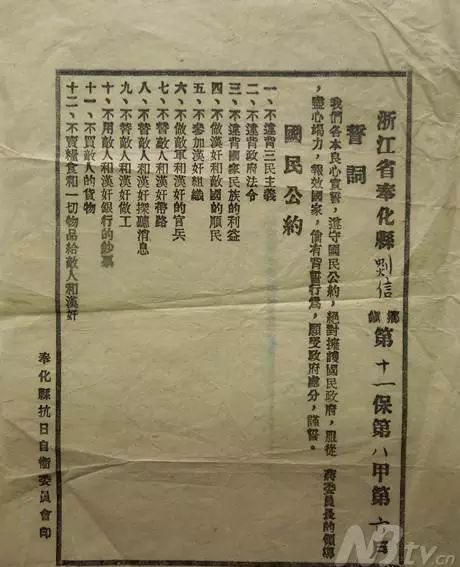 浙江省奉化縣剡信鄉鎮第十一保第八甲第六戶
誓詞
我們各本良心宣誓，遵守國民公約，絕對擁護國民政府，服從　蔣委員長的領導
，盡心竭力，報效國家，倘有背誓行爲，願受政府處分，謹誓。
國民公約
一、不違背三民主義
二、不違背政府法令
三、不違背國家民族的利益
四、不做漢奸和敵國的順民
五、不參加漢奸組織
六、不做敵軍和漢奸的官兵
七、不替敵人和漢奸帶路
八、不替敵人和漢奸探聽消息
九、不替敵人和漢奸做工
十、不用敵人和漢奸銀行的鈔票
十一、不買敵人的貨物
十二、不賣糧食和一切物品給敵人和漢奸
奉化縣抗日自衛委員會印
NBtv.cn